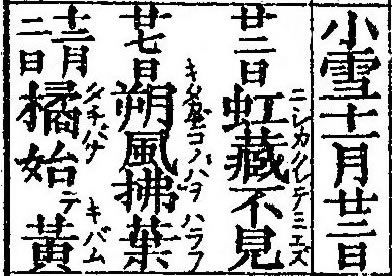 小雪十一月廿二日
廿二日 虹藏不見
ニジカクレテミエズ
廿七日 朔風拂葉
キタカゼコノハヲハラフ
十二月二日 橘始黃
タチバナ
テキバム